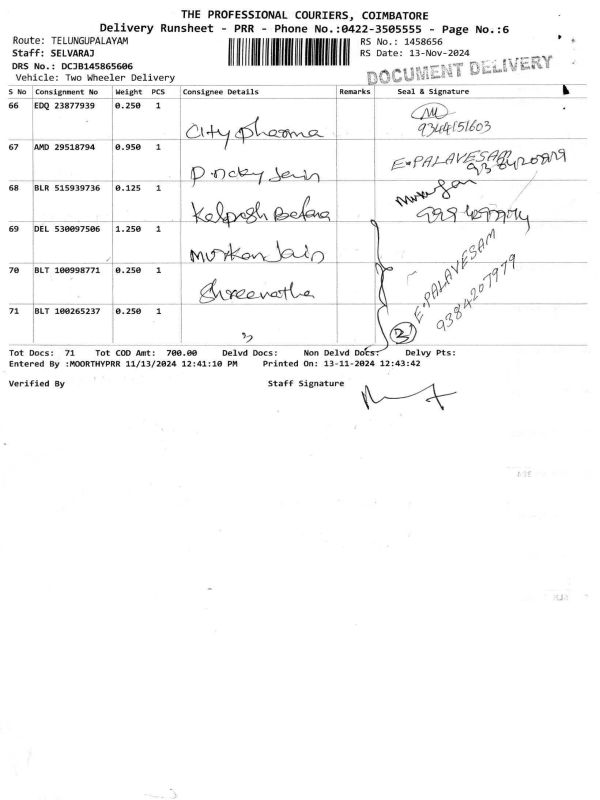 THE PROFESSIONAL COURIERS, COIMBATORE
Delivery Runsheet - PRR - Phone No.:0422-3505555 - Page No.:6
Route: TELUNGUPALAYAM
RS No.: 1458656
Staff: SELVARAJ
RS Date: 13-Nov-2024
DRS No.: DCJB145865606
DOCUMENT DELIVERY
Vehicle: Two Wheeler Delivery
S No Consignment No Weight PCS Consignee Details Remarks Seal & Signature
66 EDQ 23877939 0.250 1
City Pharma 9344151603
67 AMD 29518794 0.950 1
Jain E.PALAVESAM
68 BLR 515939736 0.125 1
69 DEL 530097506 1.250 1
Jain
70 BLT 100998771 0.250 1
Shreenatha E.PALAVESAM
9384207979
71 BLT 100265237 0.250 1
3
Tot Docs: 71 Tot COD Amt: 700.00 Delvd Docs: Non Delvd Docs: Delvy Pts:
Entered By :MOORTHYPRR 11/13/2024 12:41:10 PM Printed On: 13-11-2024 12:43:42
Verified By Staff Signature